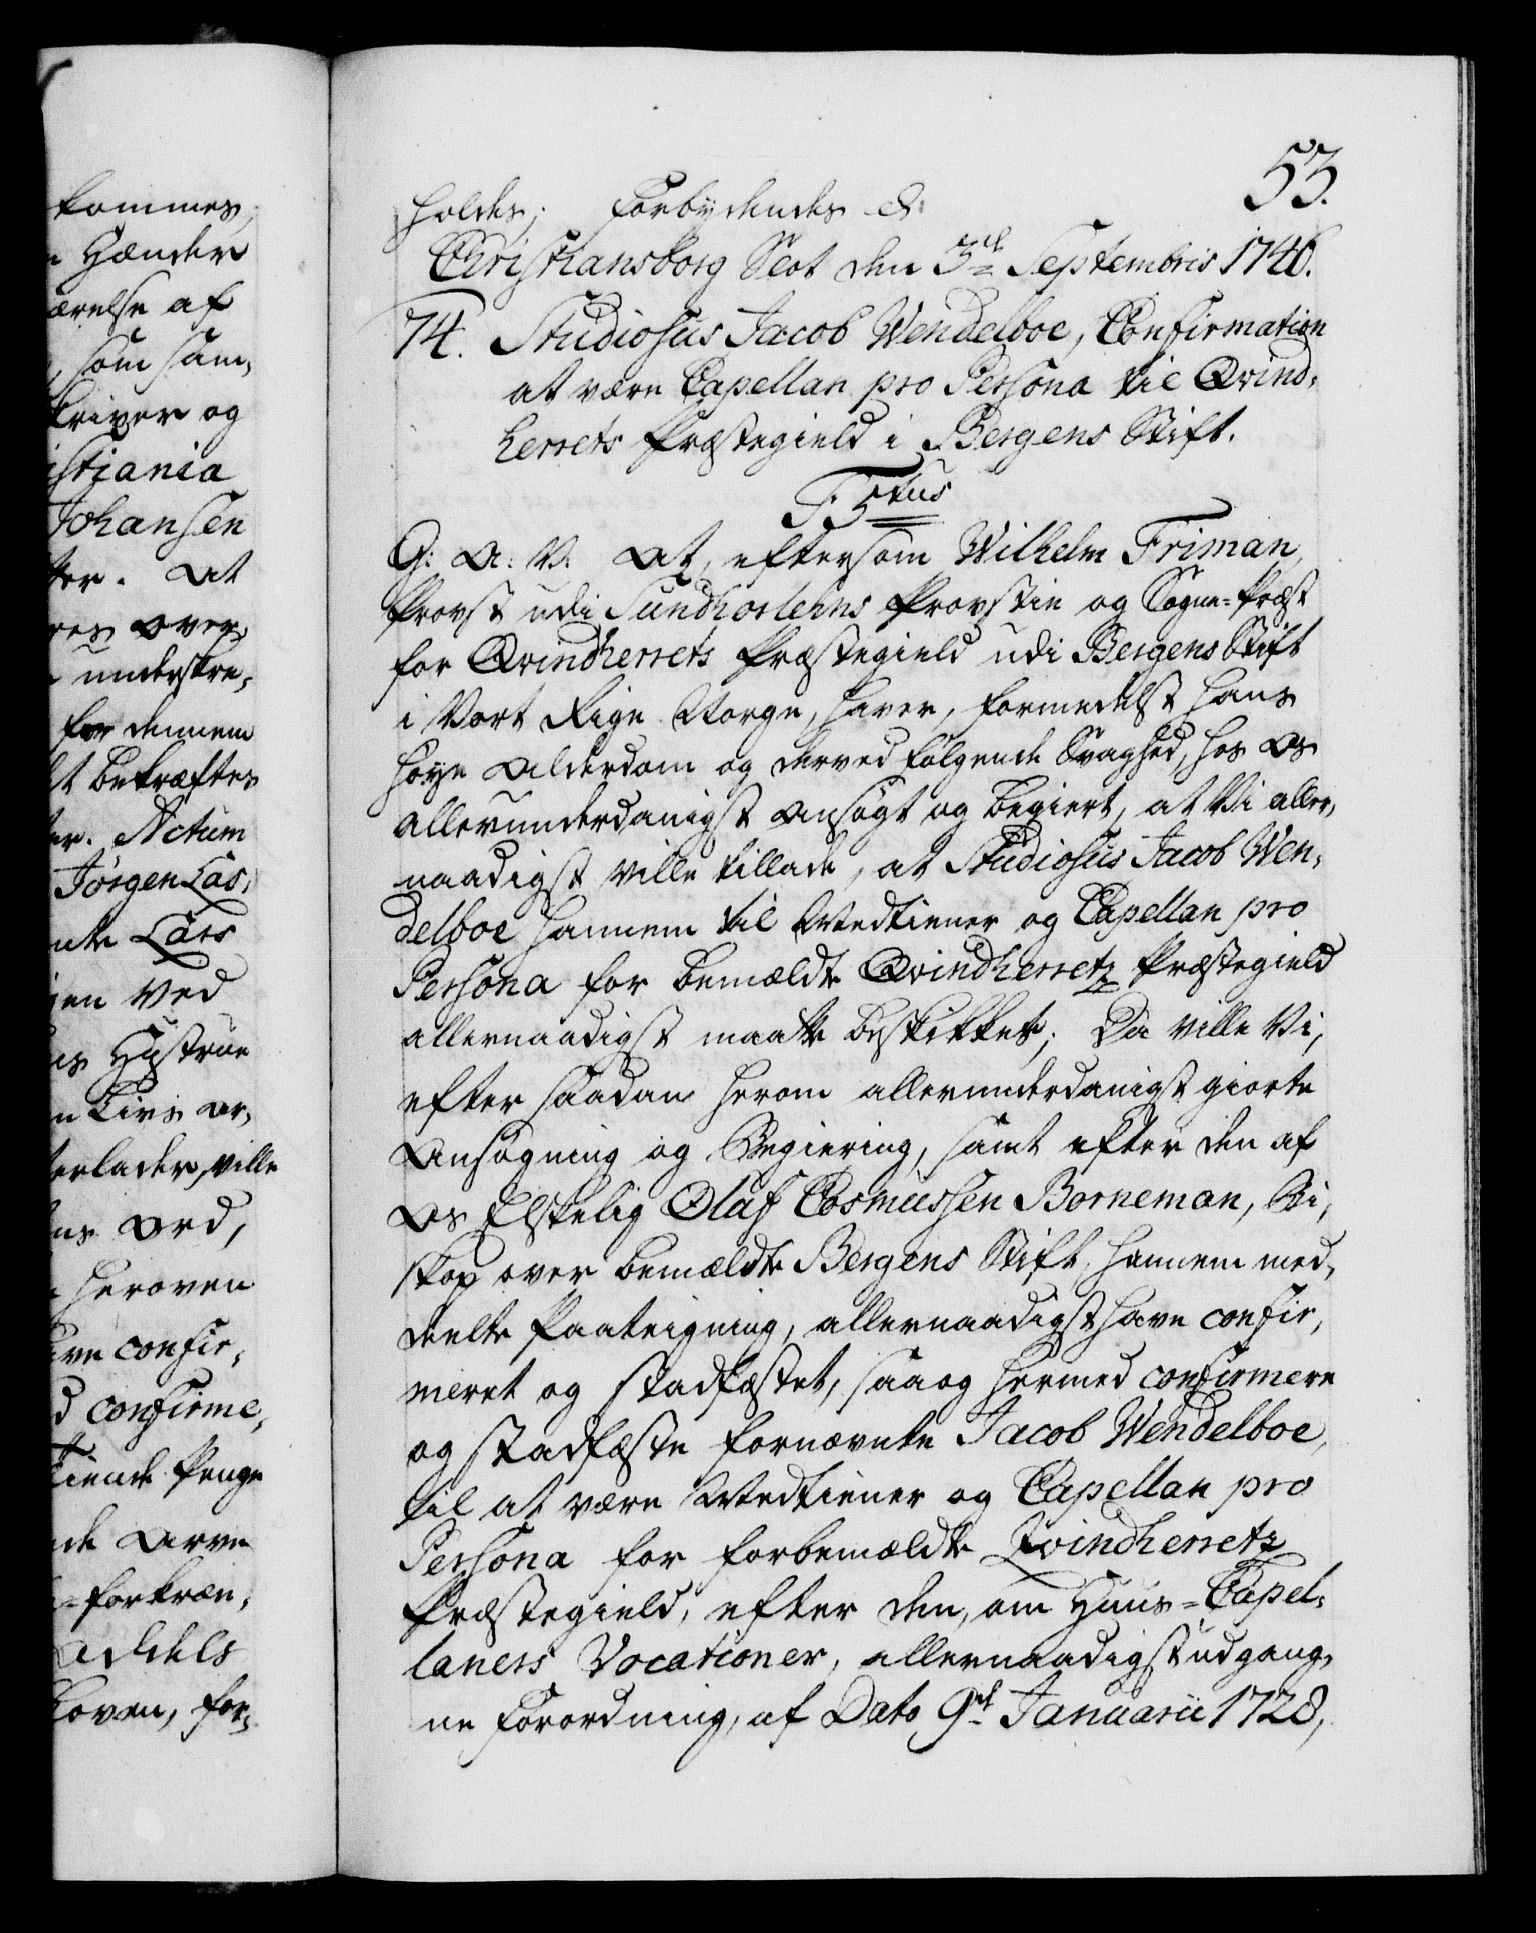 53.
holdes; Forbydendes &:
Christiansborg Slot den 3de Septembris 1740.
74. Studiosus Jacob Wendelboe, Confirmation
at være Capellan pro Persona til Qvind-
herrets Præstegield i Bergens Stift.
F. 5tus
G: A: V. At, eftersom Wilhelm Friman,
Provst udi Sundhorlehns Provstie og Sogne-Præst
for Qvindherrets Præstegield udi Bergens Stift
i Vort Rige Norge, haver, formedelst hans
høye Alderdom og derved følgende Svaghed, hos Os
allerunderdanigst Ansøgt og begiert, at Vi aller-
naadigst ville tillade, at Studiosus Jacob Wen-
delboe hannem til Medtiener og Capellan pro
Persona for bemældte Qvindherretz Præstegield
allernaadigst maatte beskikket; Da ville Vi,
efter saadan herom allerunderdanigst giorte
Ansøgning og Begiering, samt efter den af
Os Elskelig Olaf Cosmussen Borneman, Bi-
skop over bemældte Bergens Stift, hannem med-
deelte Paateigning, allernaadigst have confir-
meret og stadfæstet, saa og hermed confirmere
og stadfæste fornævnte Jacob Wendelboe,
til at være Medtiener og Capellan pro
Persona for forbemældte Qvindherretz
Præstegield, efter den, om Huus-Capel-
laners Vocationer, allernaadigst udgang-
ne Forordning, af Dato 9de Januarii 1728,
kommes,
Hænder
ærelse af
som sam-
kriver og
istiania
Johansen
ter. At
res over-
underskre-
for dennem
lt bekræftes
er. Actum
Jørgen Las-
nte Lars
gen ved
ns Hustrue
n Livs Ar-
terlader, ville
ns Ord,
heroven
ave confir-
d confirme-
tiende Penge
nde Arve
forkræn-
addels
Loven, for-